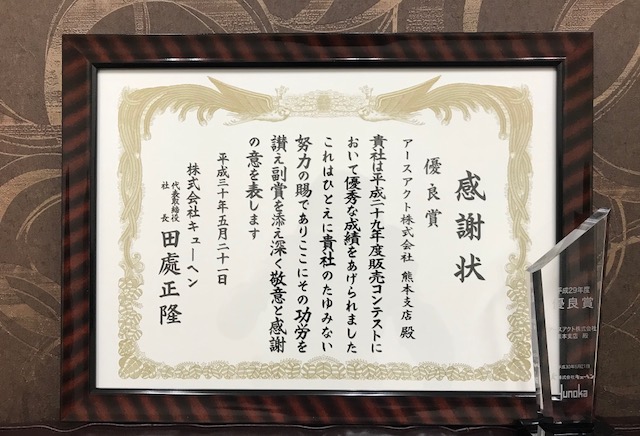 感謝状
優良賞
アースアクト株式会社 熊本支店 殿
貴社は平成二十九年度販売コンテストに
おいて優秀な成績をあげられました
これはひとえに貴社のたゆみない
努力の賜でありここにその功労を
讃え副賞を添え深く敬意と感謝
の意を表します
平成三十年五月二十一日
株式会社キューヘン
代表取締役
社長 田處正隆
平成29年度
優良賞
アースアクト株式会社
熊本支店 殿
平成30年5月21日
株式会社キューヘン
yunoka